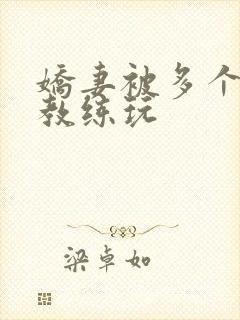 嬌妻被多个
教练玩
梁卓如